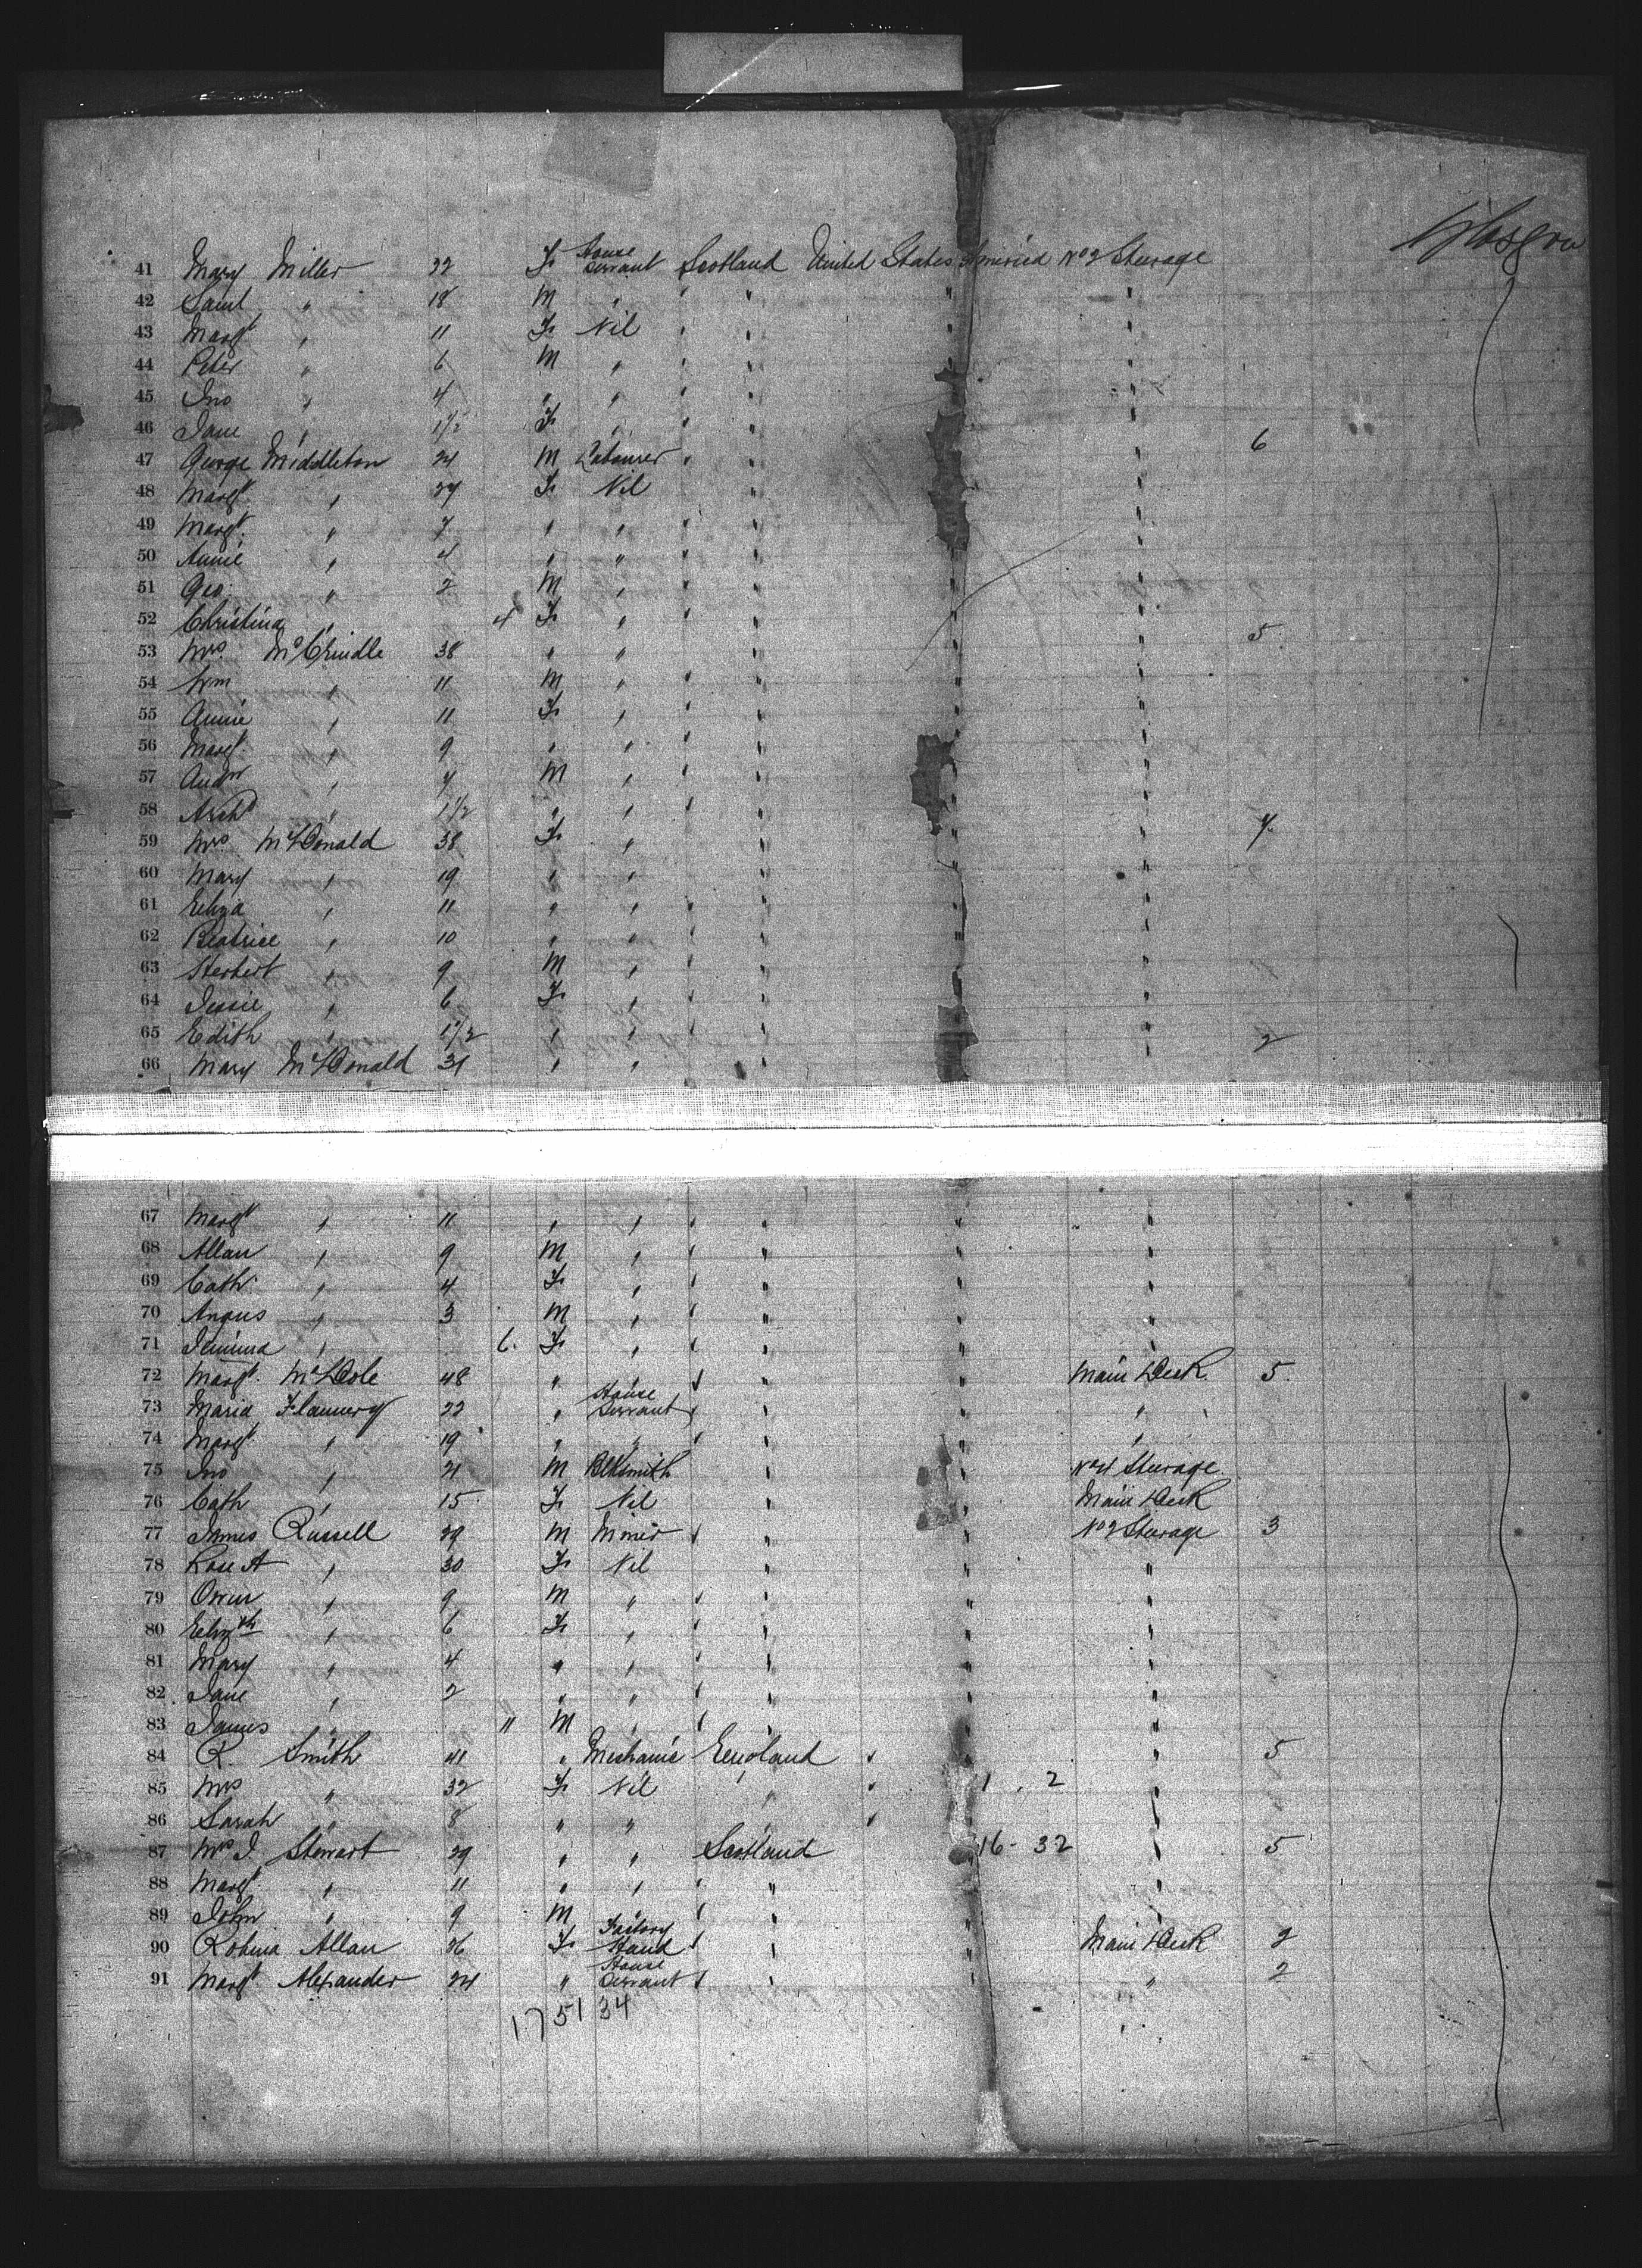 Glasgow
41 Mary Miller 22 F House Servant Scotland United States America No 2 Steerage
42 Saml " 18 M " " " " "
43 Margt " 11 F Nil " " " "
44 Peter " 6 M " " " " "
45 Jno " 4 " " " " " "
46 Jane " 1½ F " " " " " 6
47 George Middleton 24 M Labourer " " " "
48 Margt " 27 F Nil " " " "
49 Margt " 7 " " " " " "
50 Annie " 4 " " " " " "
51 Geo. " 2 M " " " " "
52 Christina " 4 F " " " " " 5
53 Mrs McCrindle 38 " " " " " "
54 Wm " 11 M " " " " "
55 Annie " 11 F " " " " "
56 Margt " 9 " " " " " "
57 Andw " 4 M " " " " "
58 Archd " 1½ " " " " " " 7
59 Mrs McDonald 38 F " " " " "
60 Mary " 19 " " " " " "
61 Eliza " 11 " " " " " "
62 Beatrice " 10 " " " " " "
63 Herbert " 9 M " " " " "
64 Jessie " 6 F " " " " "
65 Edith " 1½ " " " " " " 2
66 Mary McDonald 31 " " " " " "
67 Margt " 11 " " " " " "
68 Allan " 9 M " " " " "
69 Cath " 4 F " " " " "
70 Angus " 3 M " " " " "
71 Jemima " 6 F " " " " "
72 Margt McDole 48 " " " " " Main Deck 5
73 Maria Flannery 22 " House Servant " " " "
74 Margt " 19 " " " " " "
75 Jno " 21 M Blksmith " " No 4 Steerage
76 Cath " 15 F Nil " " Main Deck
77 James Russell 29 M Miner " " " No 2 Steerage 3
78 Rose A " 30 F Nil " " "
79 Owen " 9 M " " " " "
80 Elizth " 6 F " " " " "
81 Mary " 4 " " " " " "
82 Jane " 2 " " " " " "
83 James " 11 M " " " " "
84 R. Smith 41 " Mechanic England " " " 5
85 Mrs " 32 F Nil " " 1 . 2 "
86 Sarah " 8 " " " " "
87 Mrs J. Stewart 29 " " Scotland 16 - 32 " 5
88 Margt " 11 " " " " " "
89 John " 9 M " " " " "
90 Robina Allan 26 F Factory Hand " " " Main Deck 2
91 Margt Alexander 24 " House Servant " " " " 2
17 51 34